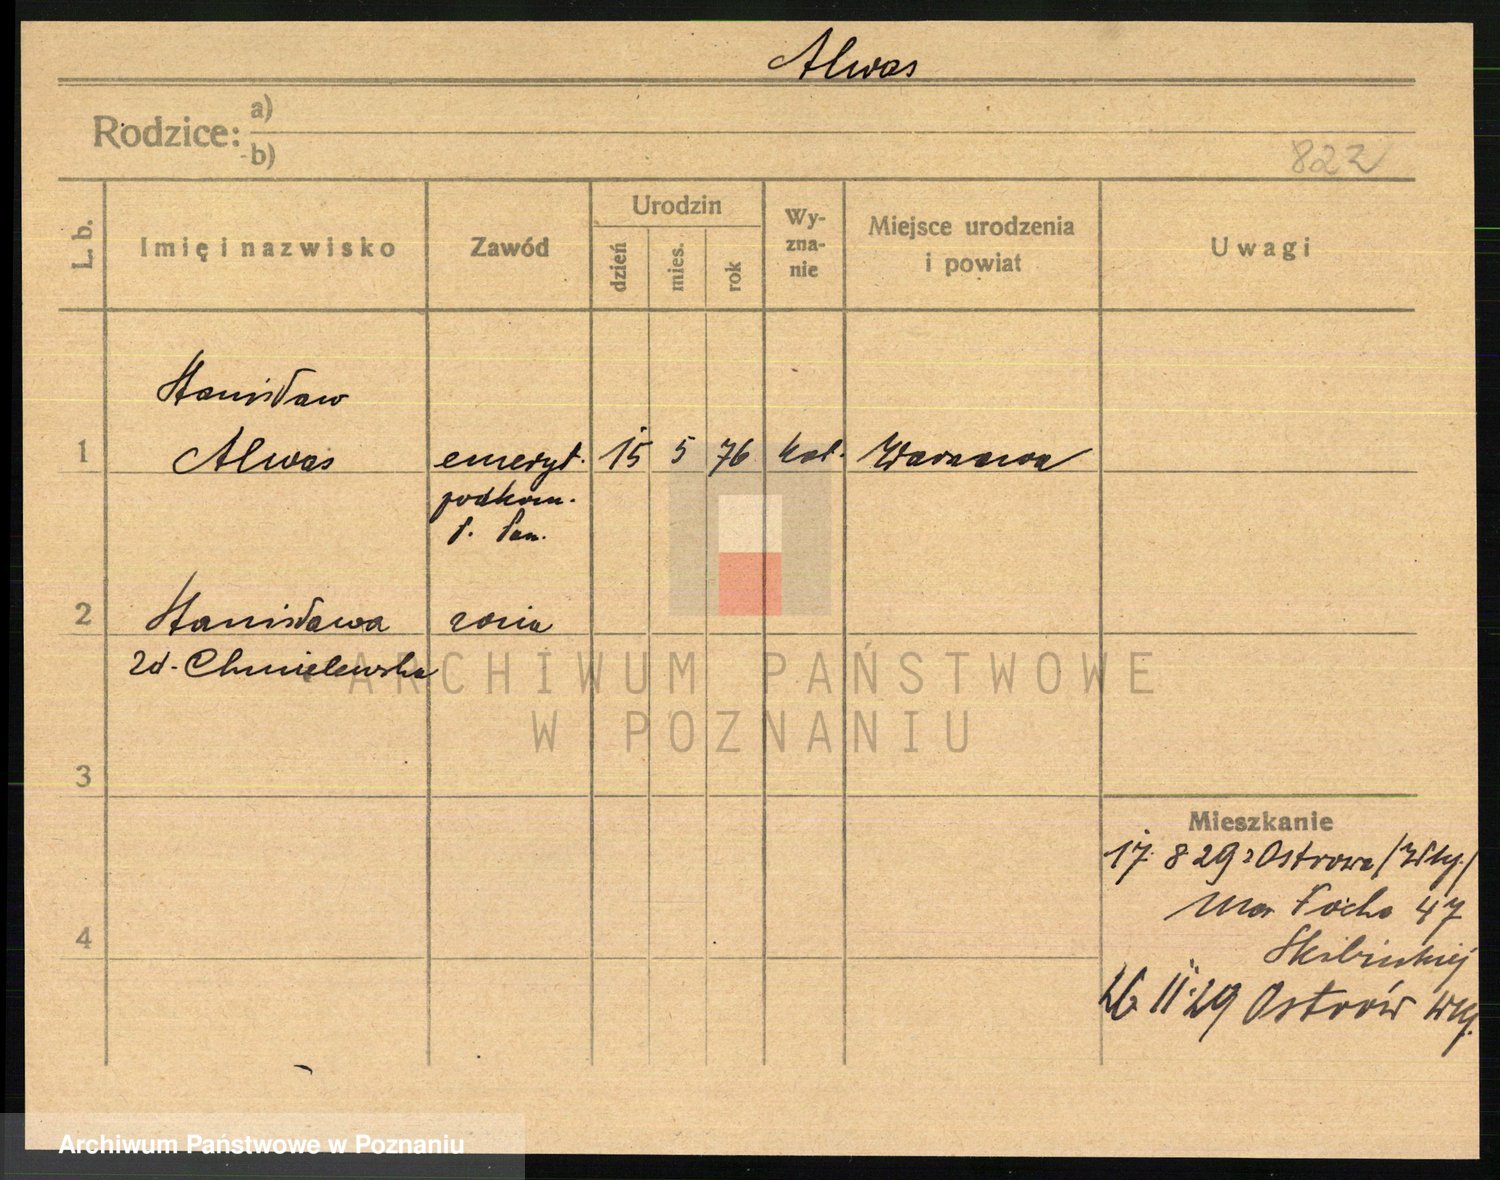 Alwas
Rodzice: a)
b)
822
L. b.
Imię i nazwisko
Zawód
Urodzin
dzień
mies.
rok
Wy-
zna-
nie
Miejsce urodzenia
i powiat
Uwagi
Stanisław
1 Alwas emeryt. 15 5 76 kat. Warszawa
podkom.
P. Pan.
2 Stanisława żona
zd. Chmielewska
3
Mieszkanie
17. 8 29 z Ostrowa /Wlkp./
Mar Focha 47
4
Skibińskiej
26 II 29 Ostrów Wlkp.
ARCHIWUM PAŃSTWOWE
W POZNANIU
Archiwum Państwowe w Poznaniu